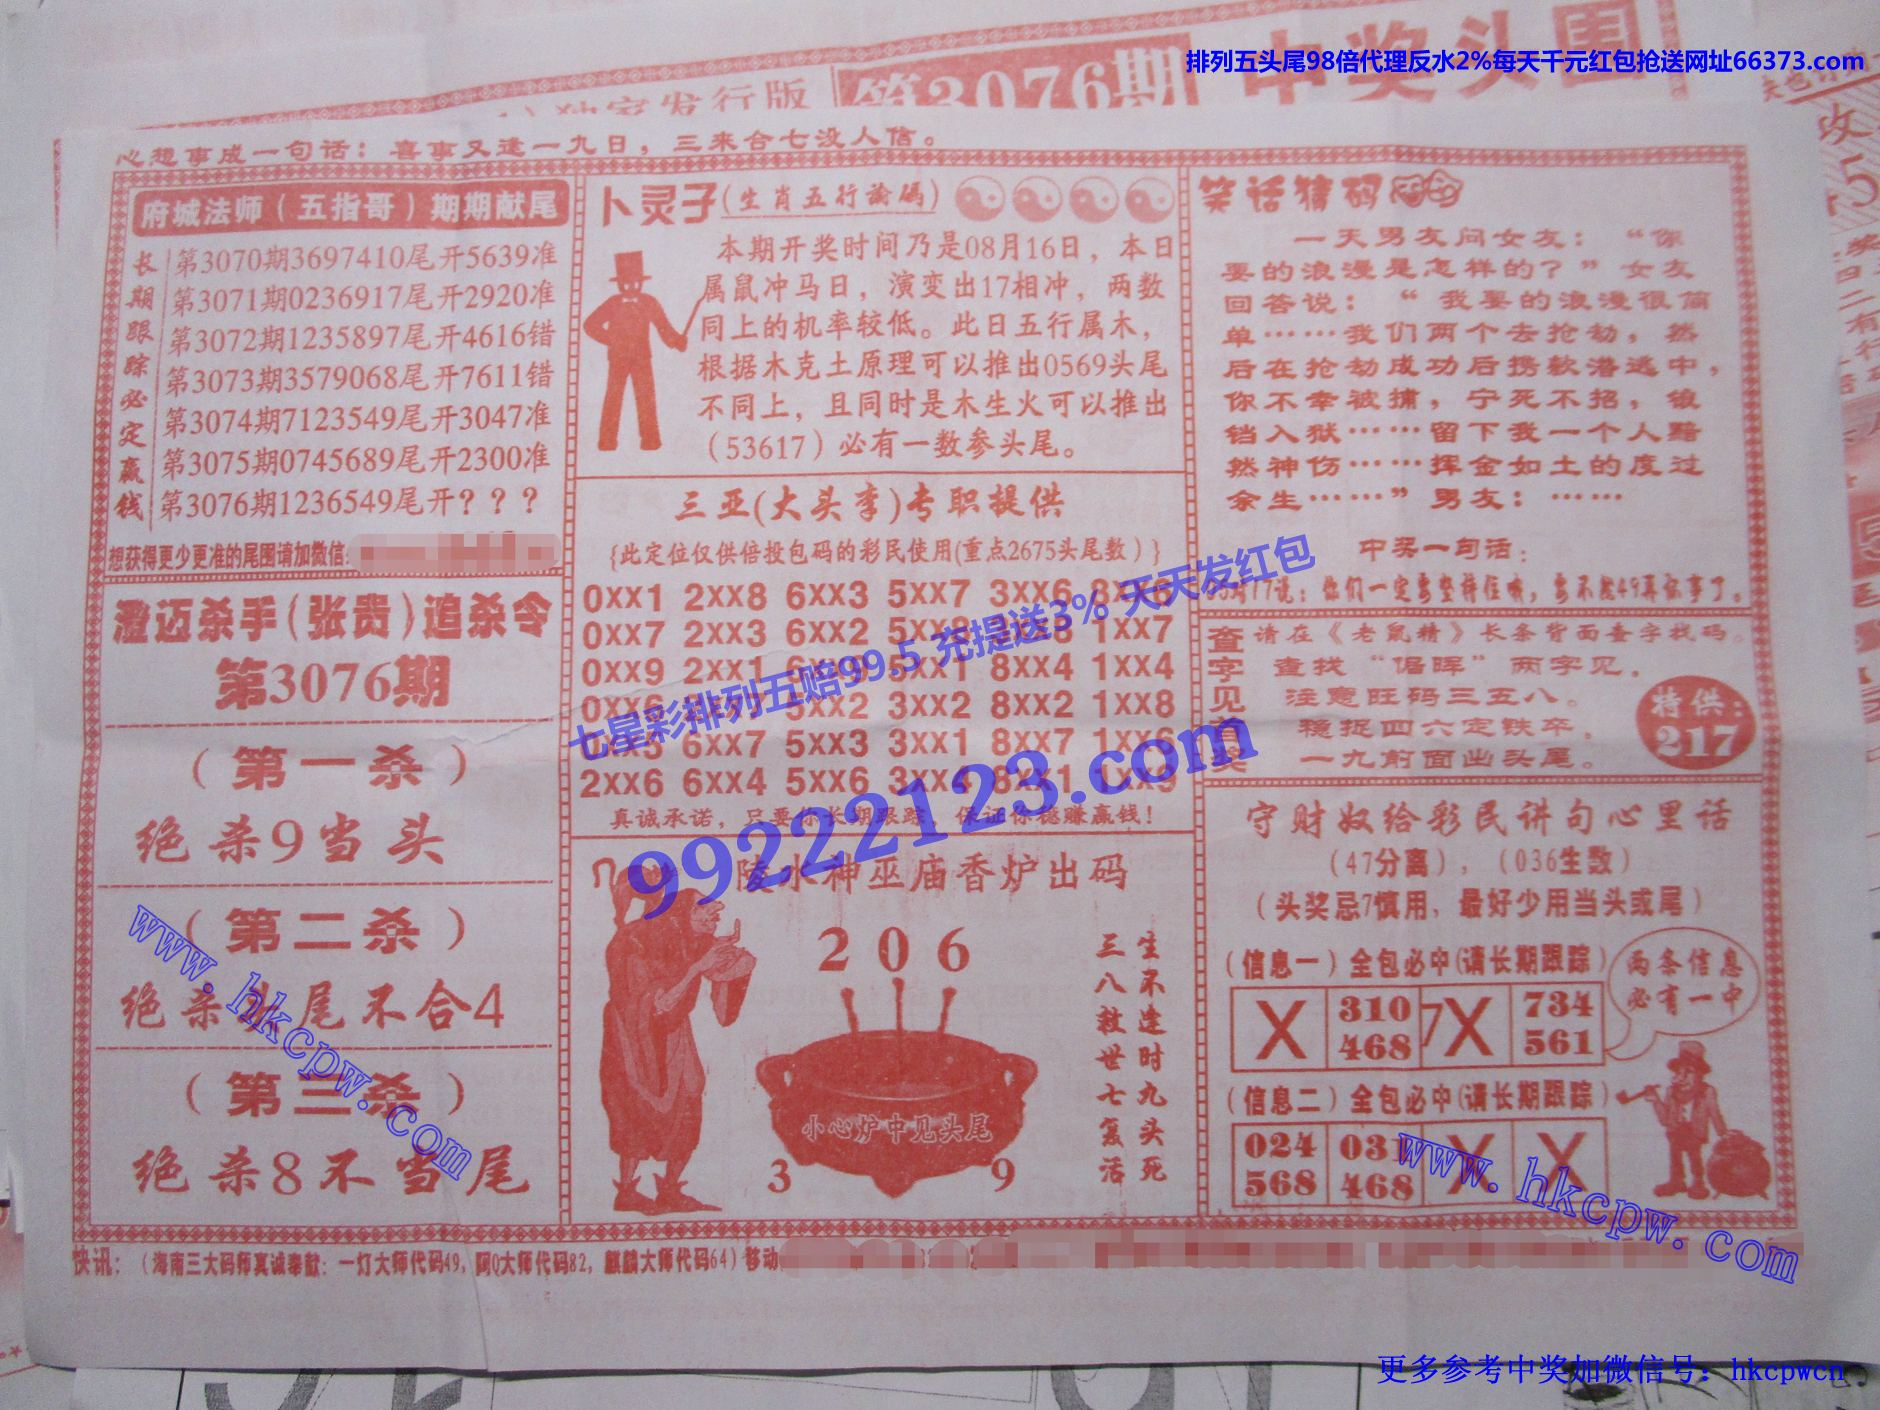 排列五头尾98倍代理反水2%每天千元红包抢送网址66373.com
独家发行版 第3076期 中奖头围
心想事成一句话：喜事又逢一九日，三来合七没人信。
府城法师（五指哥）期期献尾
长期跟踪必定赢钱
第3070期3697410尾开5639准
第3071期0236917尾开2920准
第3072期1235897尾开4616错
第3073期3579068尾开7611错
第3074期7123549尾开3047准
第3075期0745689尾开2300准
第3076期1236549尾开？？？
想获得更少更准的尾围请加微信：
澄迈杀手（张贵）追杀令
第3076期
（第一杀）
绝杀9当头
（第二杀）
绝杀头尾不合4
（第三杀）
绝杀8不当尾
卜灵子（生肖五行论码）
本期开奖时间乃是08月16日，本日
属鼠冲马日，演变出17相冲，两数
同上的机率较低。此日五行属木，
根据木克土原理可以推出0569头尾
不同上，且同时是木生火可以推出
（53617）必有一数参头尾。
三亚(大头李)专职提供
{此定位仅供倍投包码的彩民使用(重点2675头尾数）}
0XX1 2XX8 6XX3 5XX7 3XX6 8XX6
0XX7 2XX3 6XX2 5XX 1XX7
0XX9 2XX1 8XX4 1XX4
0XX6 5XX2 3XX2 8XX2 1XX8
6XX7 5XX3 3XX1 8XX7 1XX6
2XX6 6XX4 5XX6 8XX1 1XX9
真诚承诺，只要你长期跟踪，保证你稳赚赢钱！
七星彩排列五赔99.5 充提送3% 天天发红包
99222123.com
陵水神巫庙香炉出码
206
小心炉中见头尾
3 9
生不逢时九头死
三八救世七复活
笑话猜码
一天男友问女友：“你
要的浪漫是怎样的？”女友
回答说：“我要的浪漫很简
单……我们两个去抢劫，然
后在抢劫成功后携款潜逃中，
你不幸被捕，宁死不招，锒
铛入狱……留下我一个人黯
然神伤……挥金如土的度过
余生……”男友：……
中奖一句话：
查字见奖
请在《老鼠精》长条背面查字找码。
查找“倨晖”两字见，
注意旺码三五八。
稳捉四六定铁卒，
一九前面出头尾。
特供：
217
守财奴给彩民讲句心里话
（47分离），（036生数）
（头奖忌7慎用，最好少用当头或尾）
（信息一）全包必中(请长期跟踪）
X 310 468 7X 734 561
两条信息
必有一中
（信息二）全包必中(请长期跟踪）
024 568 031 468 X X
快讯：（海南三大码师真诚奉献：一灯大师代码49，阿Q大师代码82，麒麟大师代码64）移动
www.hkcpw.com
www.hkcpw.com
更多参考中奖加微信号：hkcpwcn